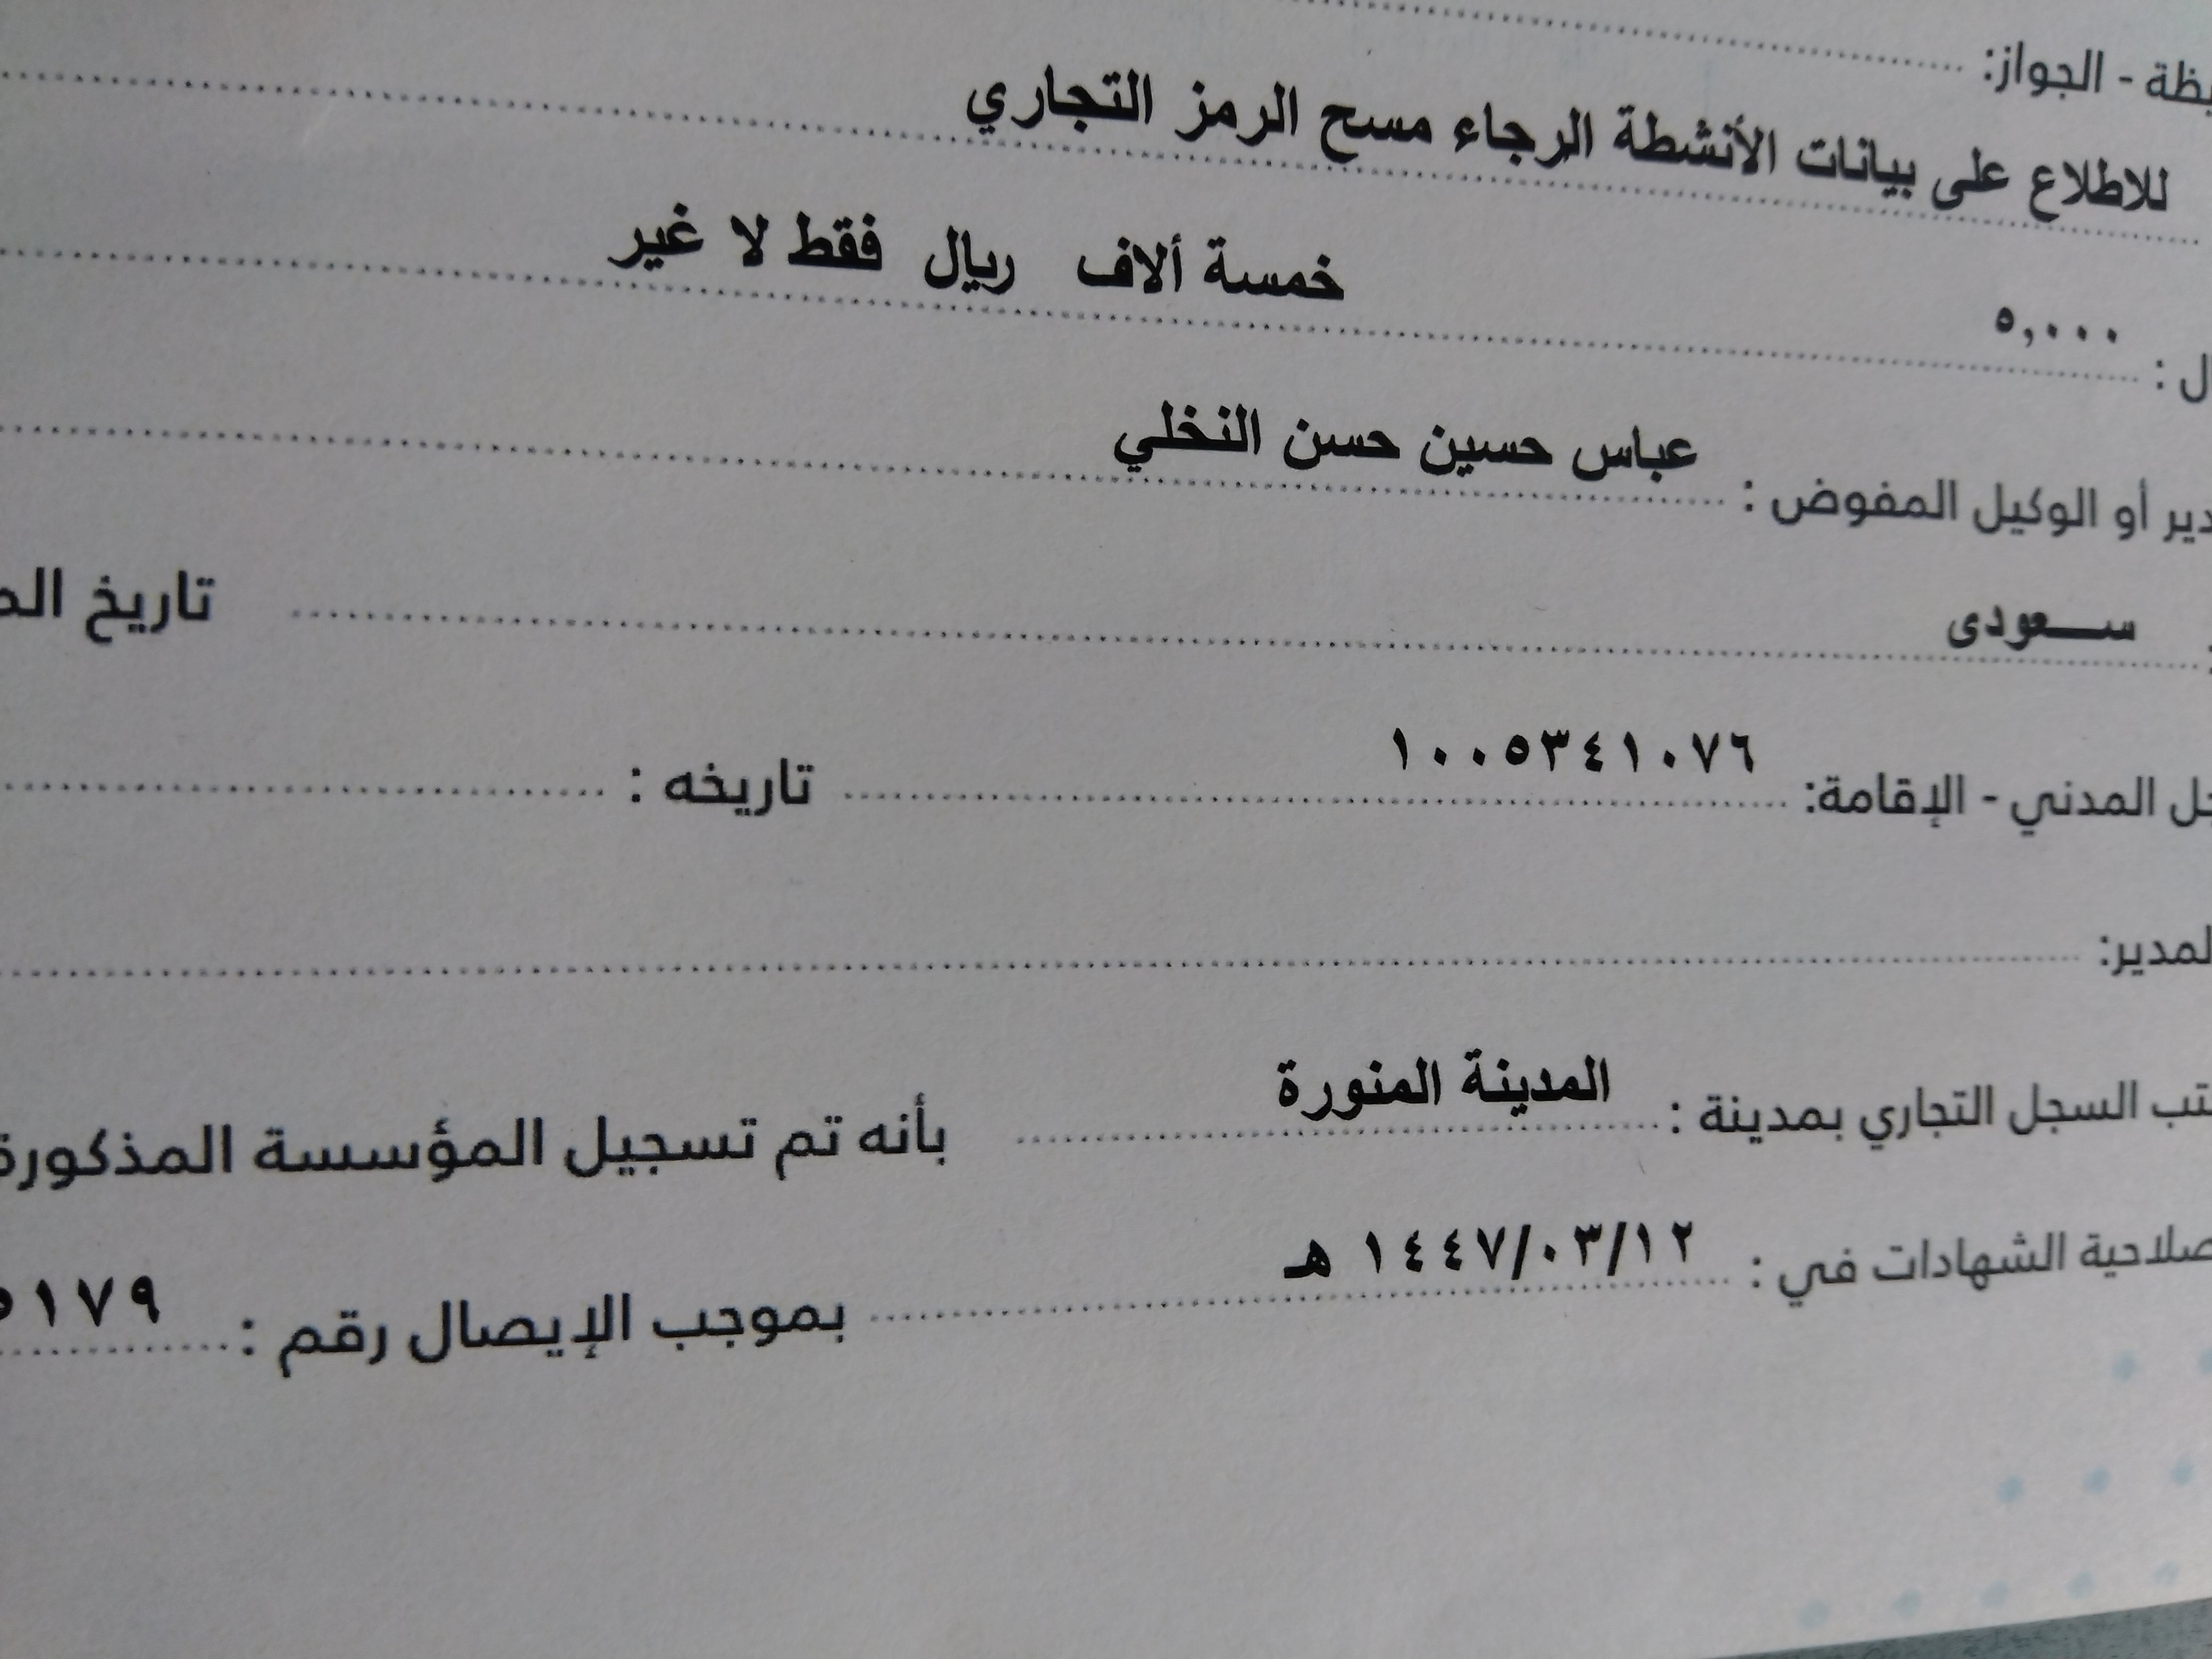 الجواز:
للاطلاع على بيانات الأنشطة الرجاء مسح الرمز التجاري
٥,٠٠٠ خمسة ألاف ريال فقط لا غير
أو الوكيل المفوض : عباس حسين حسن النخلي
سعودى تاريخ
المدني - الإقامة: ١٠٠٥٣٤١٠٧٦ تاريخه :
المدير:
السجل التجاري بمدينة : المدينة المنورة بأنه تم تسجيل المؤسسة المذكورة
صلاحية الشهادات في : ١٤٤٧/٠٣/١٢ هـ بموجب الإيصال رقم : ١٧٩